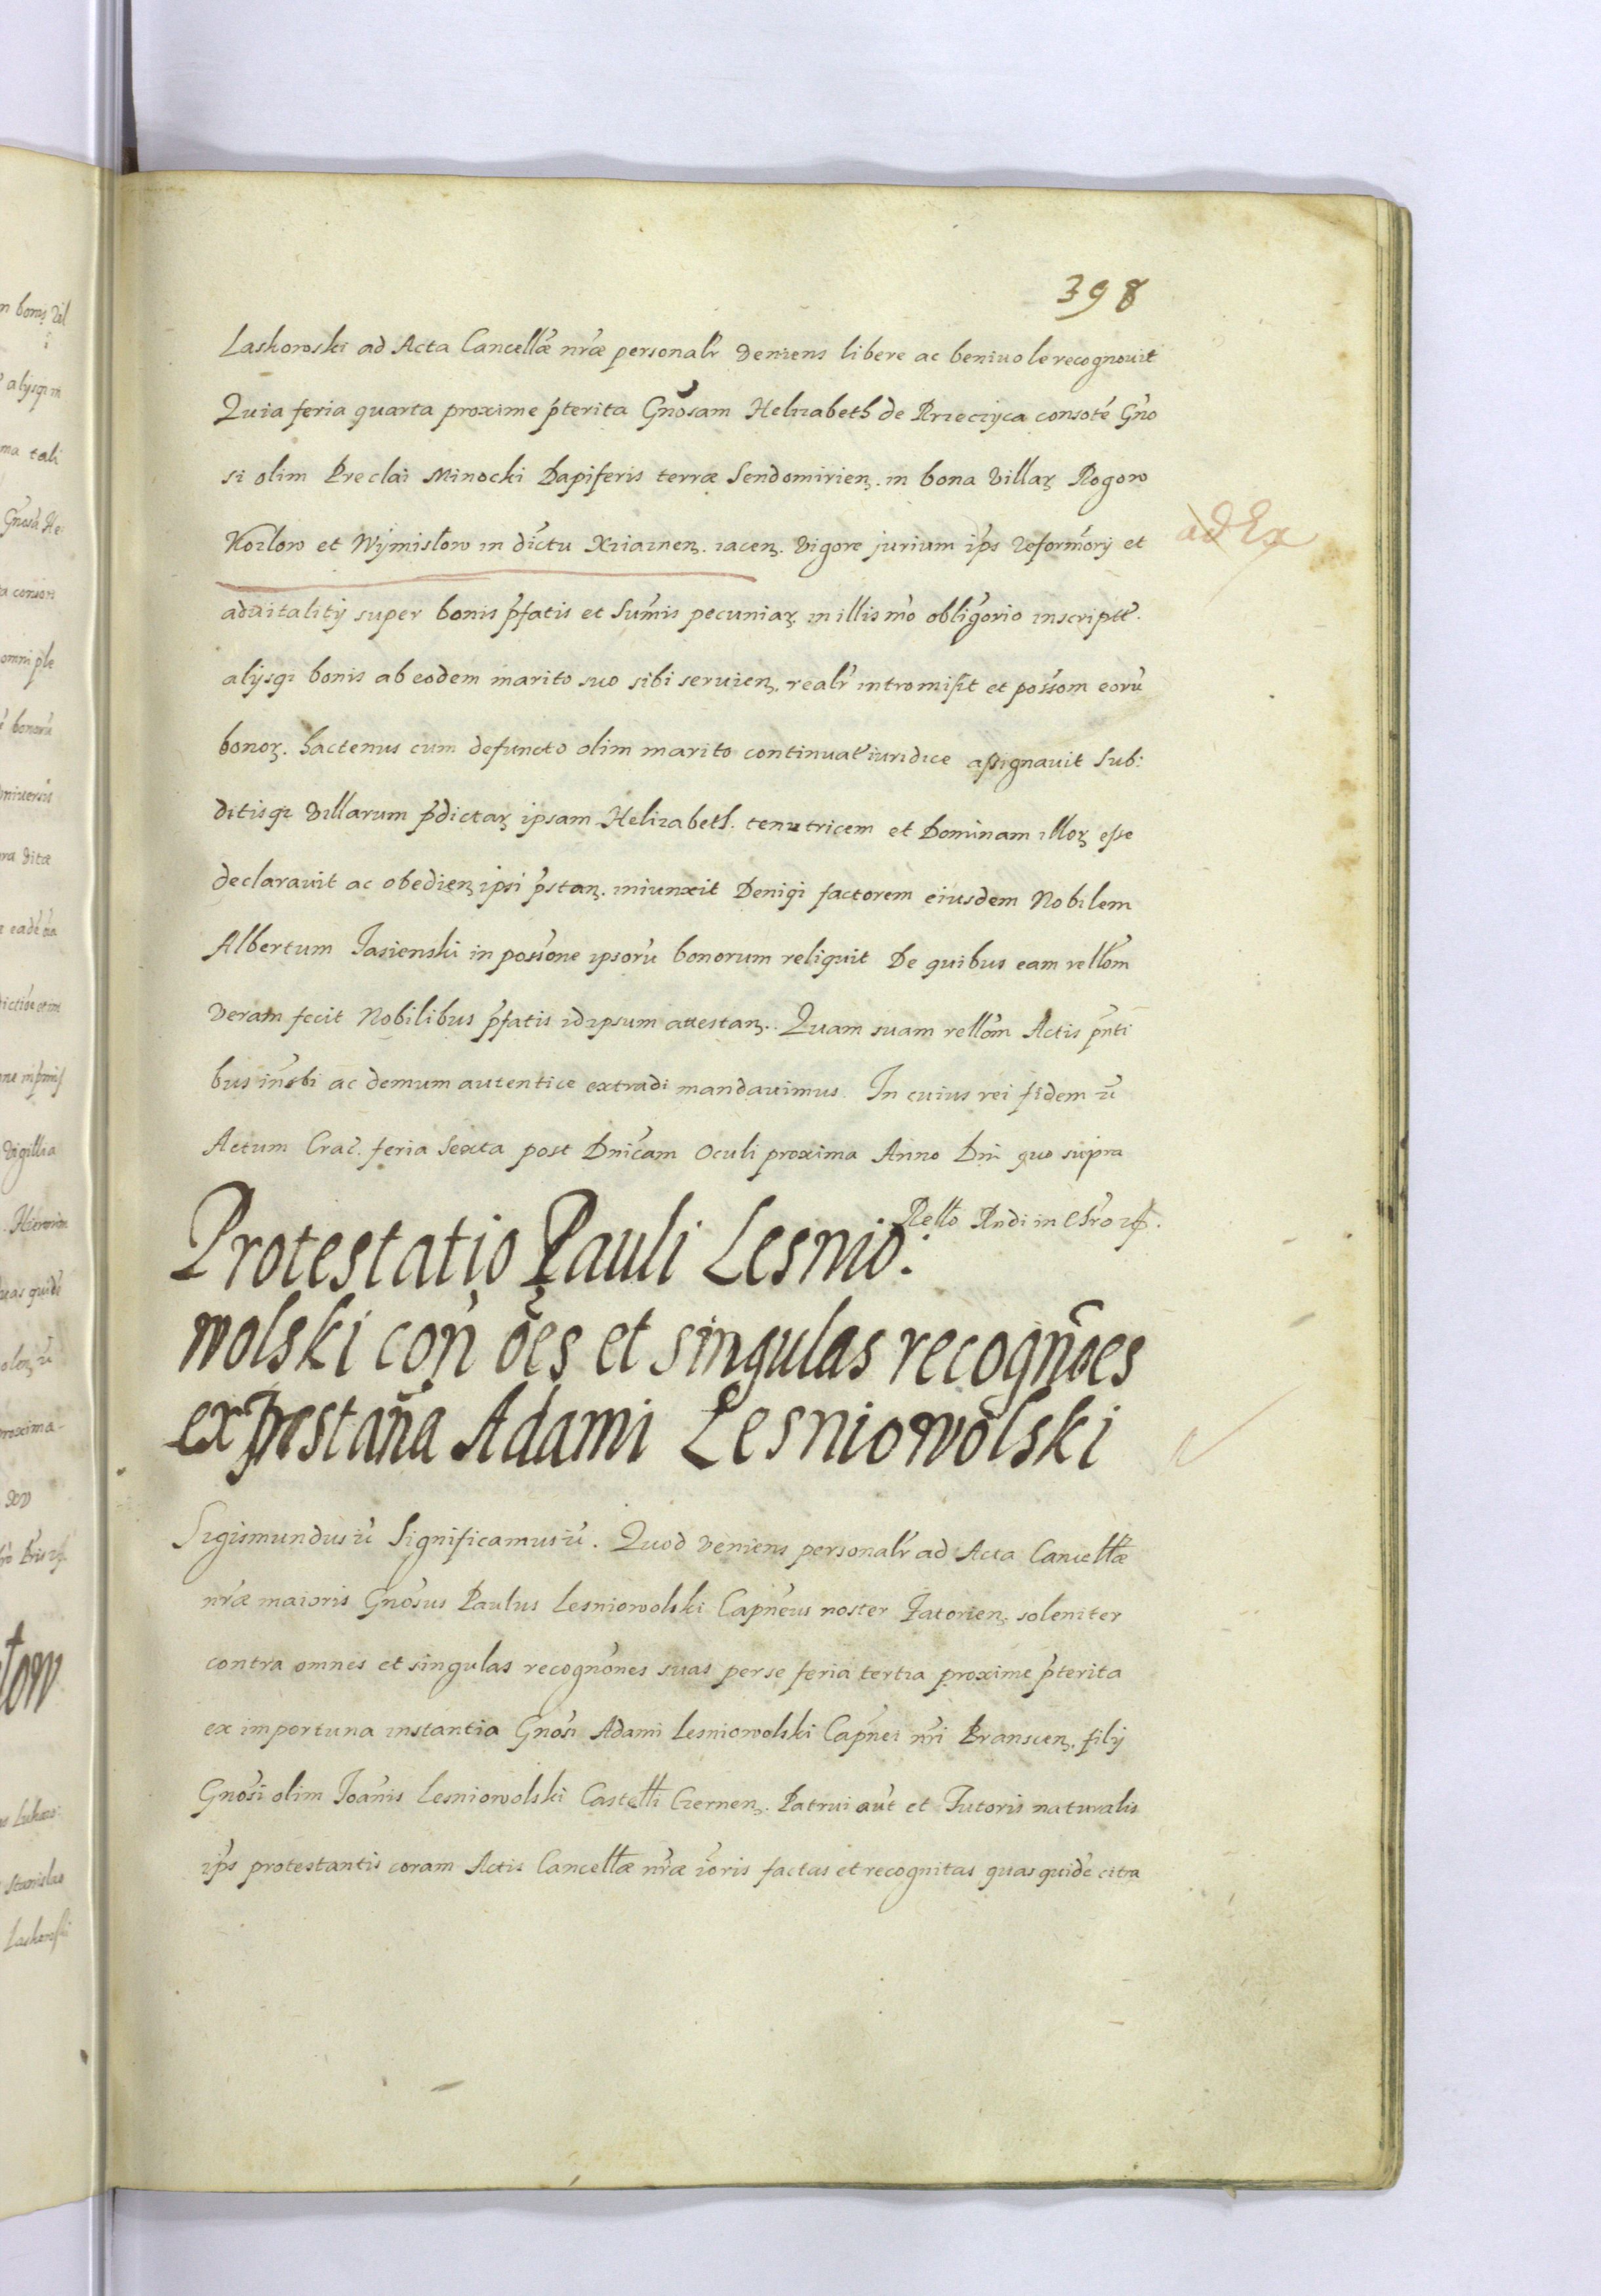 398
Laskowski ad Acta Cancellæ nr̃æ personalr̃ veniens libere ac beniuole recognouit
Quia feria quarta proxime p̃terita Gñosam Helizabeth de Rzeczyca consoté Gño
si olim Preclai Minocki Dapiferis terræ Sendomirien. in bona villaʒ Rogow
Kozlow et Wymislow in dictu Xziaznen. iacen. vigore jurium ip̃s reform̃orÿ et
aduitalitÿ super bonis p̃fatis et sum̃is pecuniaʒ in illis m̃o oblig̃orio inscript̃.
alÿsqʒ bonis ab eodem marito suo sibi seruien. realr̃ intromisit et poss̃om eorũ
bonoʒ. hactenus cum defuncto olim marito continuat̃ iuridice assignauit Sub:
ditisqʒ villarum p̃dictaʒ ipsam Helizabeth. tenutricem et Dominam illoʒ esse
declarauit ac obedien ipsi p̃stan. iniunxit Deniqʒ factorem eiusdem Nobilem
Albertum Jasienski in poss̃one ipsorũ bonorum reliquit De quibus eam rell̃om
veram fecit Nobilibus p̃fatis idipsum attestan. Quam suam rell̃om Actis p̃nti
bus in̉sbi ac demum autentice extradi mandauimus. In cuius rei fidem ʒc̃
Actum Crac̃. feria Sexta post Dñicam Oculi proxima Anno Dñi quo supra
Rell̃o Rndi in Chr̃o ʒc̃.
Protestatio Pauli Lesnio:
wolski coñ ões et singulas recogñoes
ex p̃estaña Adami Lesniowolski
Sigismundus ʒc̃ Significamus ʒc̃. Quod veniens personalr̃ ad Acta Cancellæ
nr̃æ maioris Gñosus Paulus Lesniowolski Cap̃neus noster Zatorien. soleniter
contra omnes et singulas recogñones suas per se feria tertia proxime p̃terita
ex importuna instantia Gñosi Adami Lesniowolski Cap̃nei nr̃i Branscen. filÿ
Gñosi olim Joañis Lesniowolski Castell̃i Czernen. Patrui aũt et Tutoris naturalis
ip̃s protestantis coram Actis Cancellæ nr̃æ ĩoris factas et recognitas quas quidẽ citra